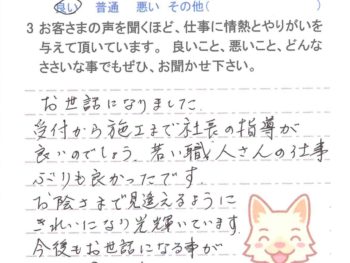 良い 普通 悪い その他( )
3 お客さまの声を聞くほど、仕事に情熱とやりがいを
与えて頂いています。 良いこと、悪いこと、どんな
ささいな事でもぜひ、お聞かせ下さい。
お世話になりました
受付から施工まで社長の指導が
良いのでしょう。若い職人さんの仕事
ぶりも良かったです。
お陰さまで見違えるように
きれいになり光輝いています。
今後もお世話になる事が